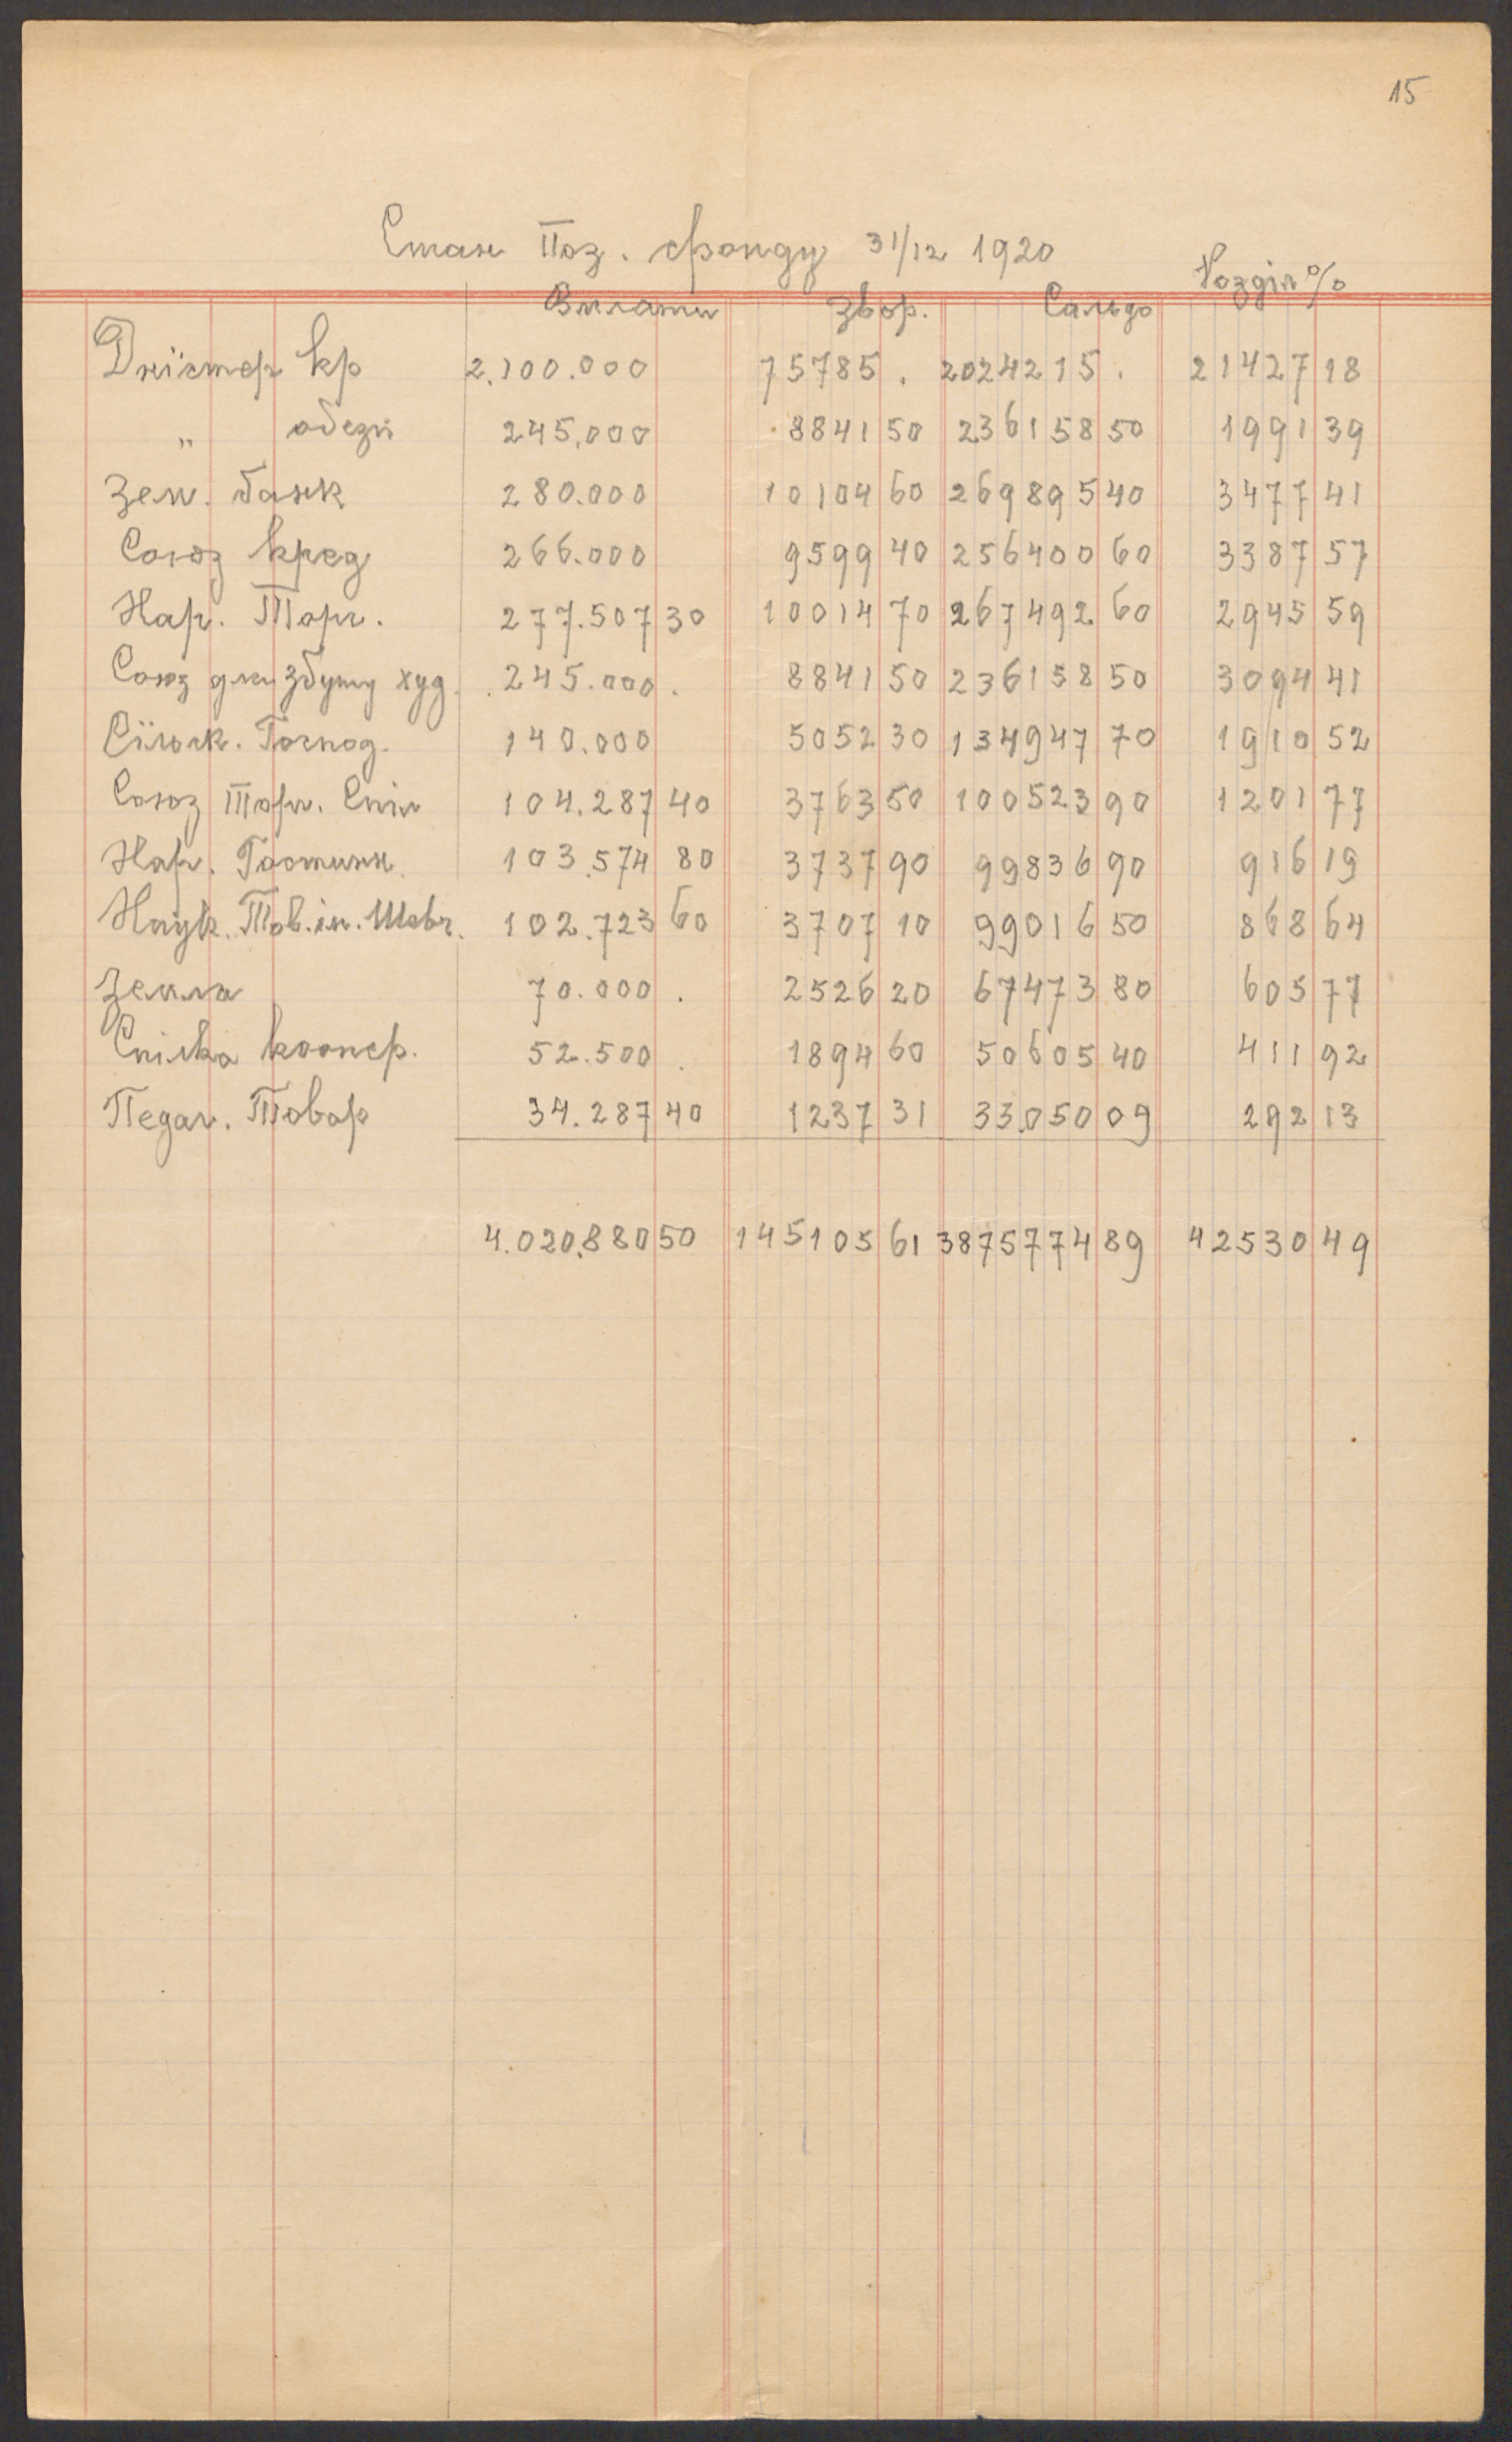 15
Стан Поз. фонду 31/12 1920
Вплати Звор. Сальдо Розділ %
Днїстер кр 2.100.000 75785 . 2024215 . 21427 18
„ обезп 245.000 8841 50 236158 50 1991 39
Зем. банк 280.000 10104 60 269895 40 3477 41
Союз кред 266.000 9599 40 256400 60 3387 57
Нар. Торг. 277.507 30 10014 70 267492 60 2945 59
Союз для збуту худ. 245.000 . 8841 50 236158 50 3094 41
Сїльск. Господ. 140.000 5052 30 134947 70 1910 52
Союз Торг. Спіл 104.287 40 3763 50 100523 90 1201 77
Нар. Гостинн. 103.574 80 3737 90 99836 90 916 19
Наук. Тов. ім. Шевч. 102.723 60 3707 10 99016 50 868 64
Земля 70.000 . 2526 20 67473 80 605 77
Спілка коопер. 52.500 . 1894 60 50605 40 411 92
Педаг. Товар 34.287 40 1237 31 33.050 09 292 13
4.020.880 50 145105 61 3875774 89 42530 49